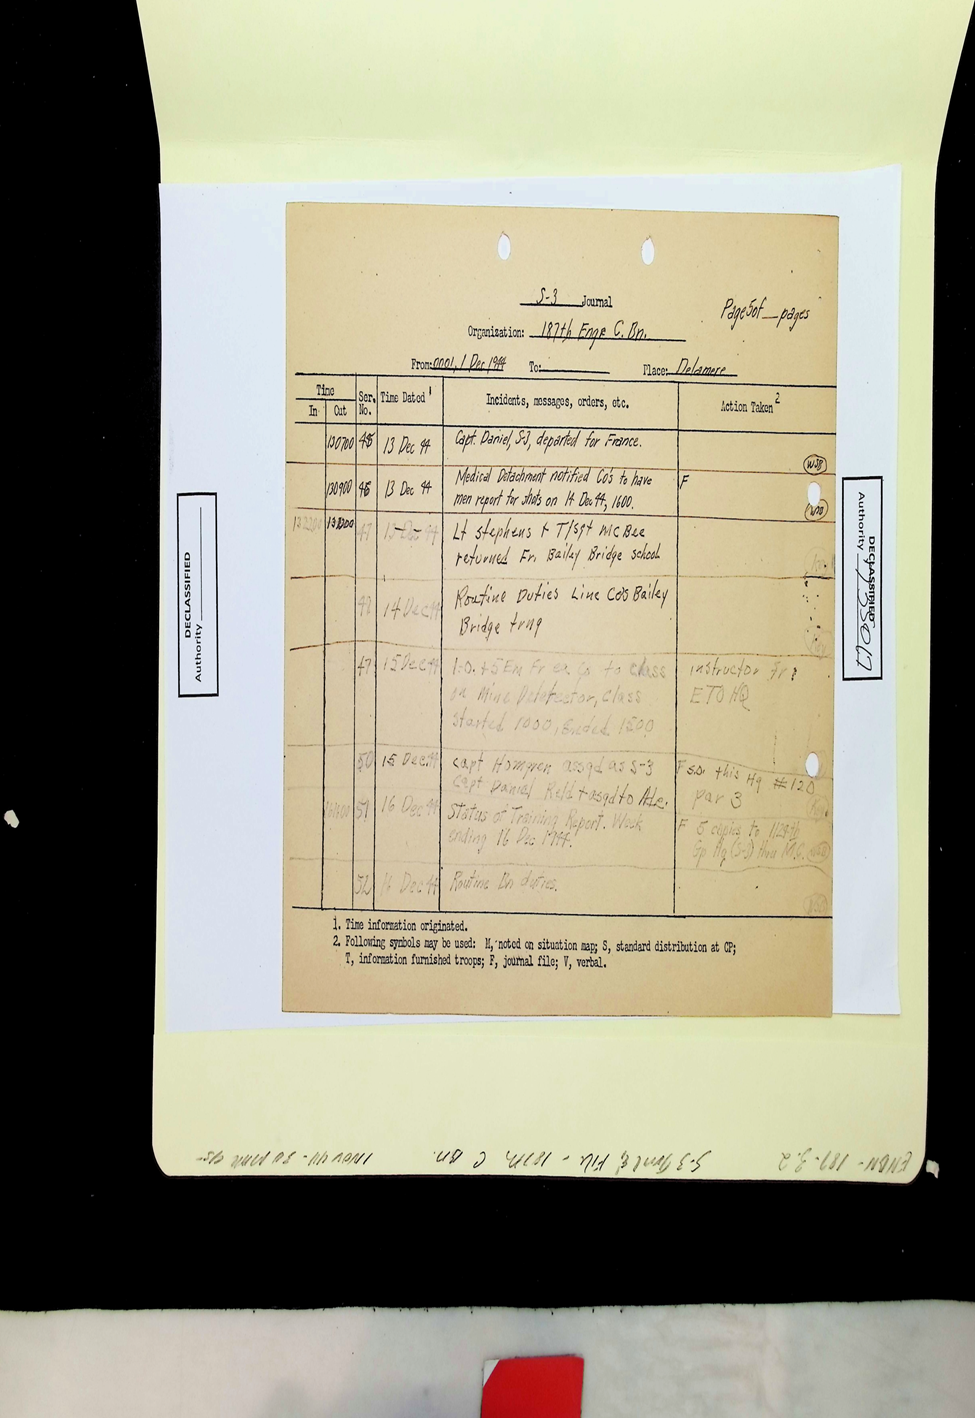 S-3 Journal
Page 5 of __ pages
Organization: 187th Engr C. Bn.
From: 0001, 1 Dec 1944 To: Place: Delamere
Time
In Out Ser. No. Time Dated 1 Incidents, messages, orders, etc. Action Taken 2
130700 45 13 Dec 44 Capt. Daniel, S-3, departed for France.
WSB
130900 46 13 Dec 44 Medical Detachment notified Co's to have F
men report for shots on 14 Dec 44, 1600.
47 13 Dec 44 Lt Stephens + T/Sgt McBee
returned Fr. Bailey Bridge school
14 Dec 44 Routine Duties Line Co's Bailey
Bridge trng
15 Dec 44 1-O. + 5 Em Fr ea Co to class instructor fr:
on Mine Detector, class ETO HQ
Started 1000, Ended 1500
50 15 Dec 44 Capt Homgren assgd as S-3 F S.O. this Hq #120
Capt Daniel Reld + asgd to par 3
51 16 Dec 44 Status of Training Report. Week F 5 copies to
ending 16 Dec 1944. Gp Hq (S-3) thru M.C.
52 16 Dec 44 Routine Bn duties.
1. Time information originated.
2. Following symbols may be used: M, noted on situation map; S, standard distribution at CP;
T, information furnished troops; F, journal file; V, verbal.
DECLASSIFIED
Authority
DECLASSIFIED
Authority
ENBN-187-3.2 S-3 Jrnl & File - 187th C Bn.